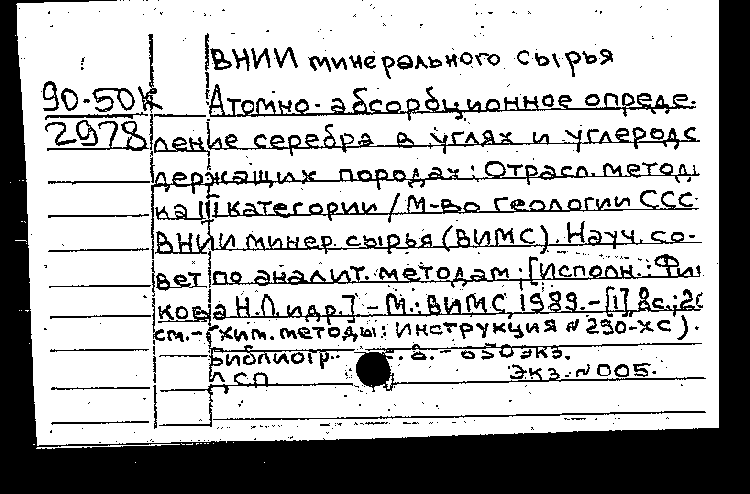 ВНИИ минерального сырья
90-50К Атомно-абсорбционное опреде-
2978 ление серебра в углях и углеродс
держащих породах: Отрасл. методи
ка III категории / М-во геологии ССС
ВНИИ минер. сырья (ВИМС). Науч. со-
вет по аналит. методам; [Исполн.:
кова Н.Л. и др.] - М.: ВИМС, 1989. - [1], 8с.; 20
см. - (Хим. методы: Инструкция № 230-ХС).
Библиогр. с. 8. - 650 экз.
ДСП Экз. № 005.